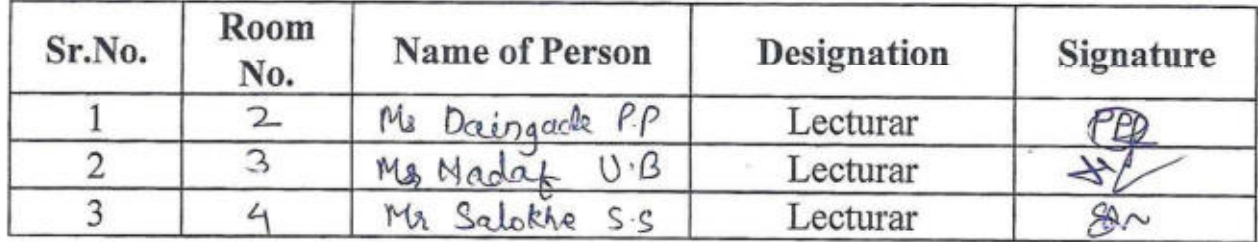 Sr.No. Room No. Name of Person Designation Signature
1 2 Ms Daingade P.P Lecturar PPD
2 3 Ms Nadaf U.B Lecturar
3 4 Mr Salokhe S.S Lecturar